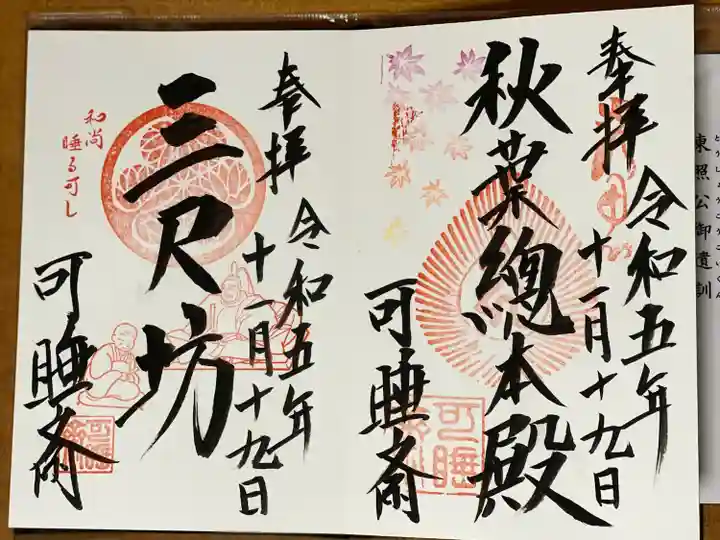 奉拝
令和五年
十一月十九日
秋葉總本殿
可睡斎
奉拝
令和五年
十一月十九日
三尺坊
和尚
睡る可し
可睡斎
東照公御遺訓